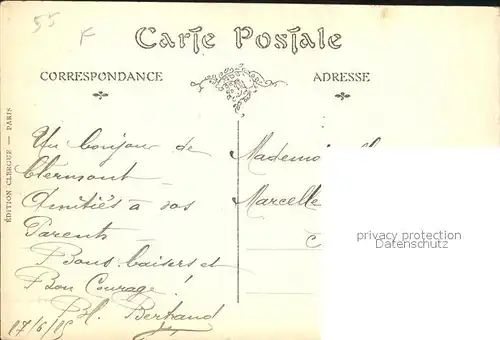 55
F
Carte Postale
CORRESPONDANCE
ADRESSE
Un bonjour de
Clermont
Amitiés à vos
Parents
Bons baisers et
Bon Courage !
Bl. Bertrand
17/6/15
Mademoi
Marcelle
privacy protection
Datenschutz
ÉDITION CLERGUE — PARIS